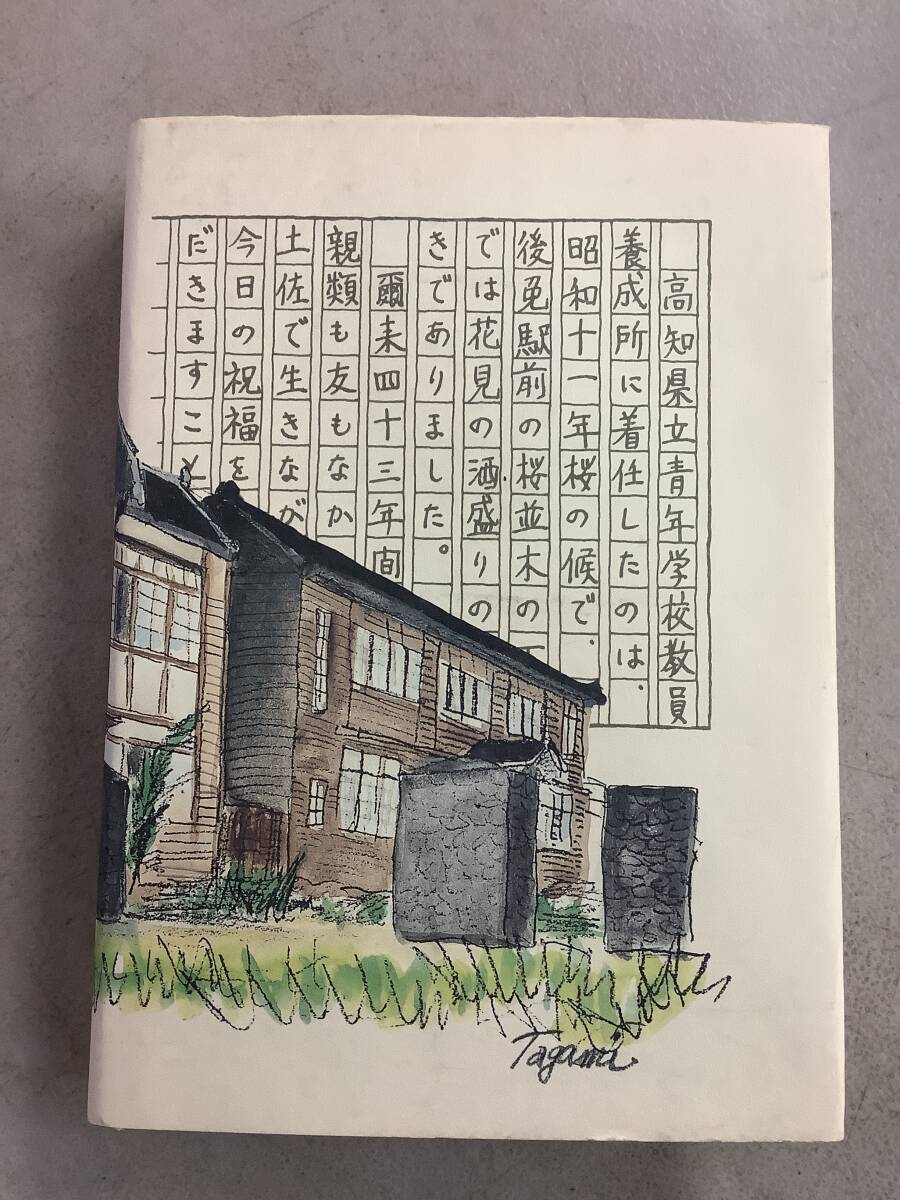 高知県立青年学校教員
養成所に着任したのは、
昭和十一年桜の候で、
後免駅前の桜並木の
では花見の酒盛りの
きでありました。
爾来四十三年間
親類も友もなか
土佐で生きなが
今日の祝福を
だきますこと
Tagami